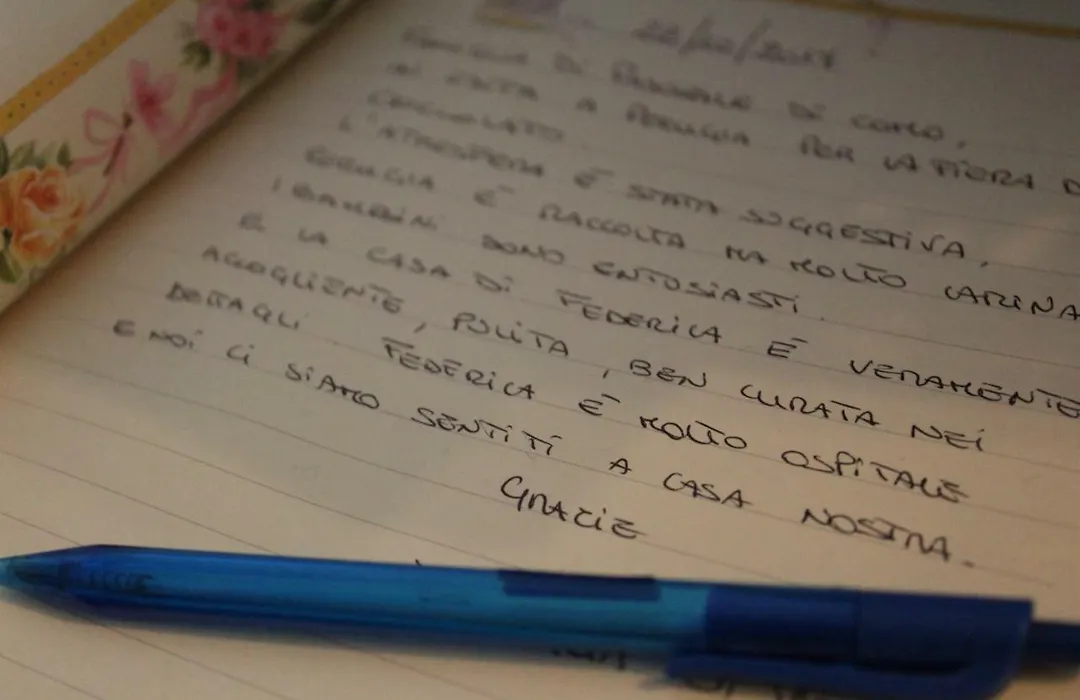 DI PASQUALE DI COMO,
IN VISITA A PERUGIA PER LA FIERA D
CIOCCOLATO.
L'ATMOSFERA È STATA SUGGESTIVA,
PERUGIA È RACCOLTA MA MOLTO CARINA
I BAMBINI SONO ENTUSIASTI.
E LA CASA DI FEDERICA È VERAMENTE
ACCOGLIENTE, PULITA, BEN CURATA NEI
DETTAGLI FEDERICA È MOLTO OSPITALE
E NOI CI SIAMO SENTITI A CASA NOSTRA.
GRAZIE